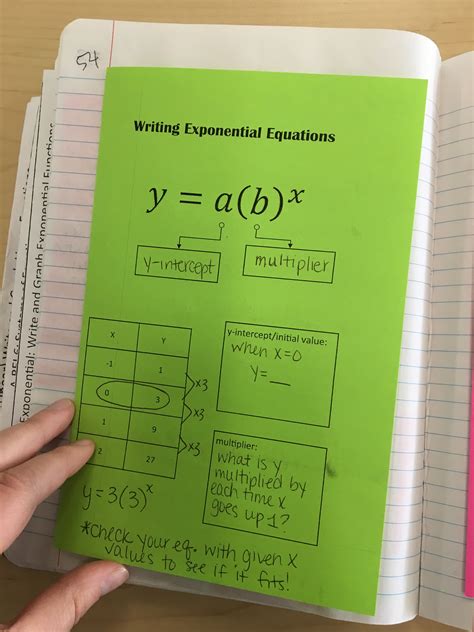 54
Writing Exponential Equations
y = a(b)^x
y-intercept
multiplier
X Y
-1 1
0 3
1 9
2 27
x3
x3
x3
y-intercept/initial value:
when x=0
y=__
multiplier:
what is y
multiplied by
each time x
goes up 1?
y=3(3)^x
*check your eq. with given x
values to see if it fits!
Exponential: Write and Graph Exponential Functions